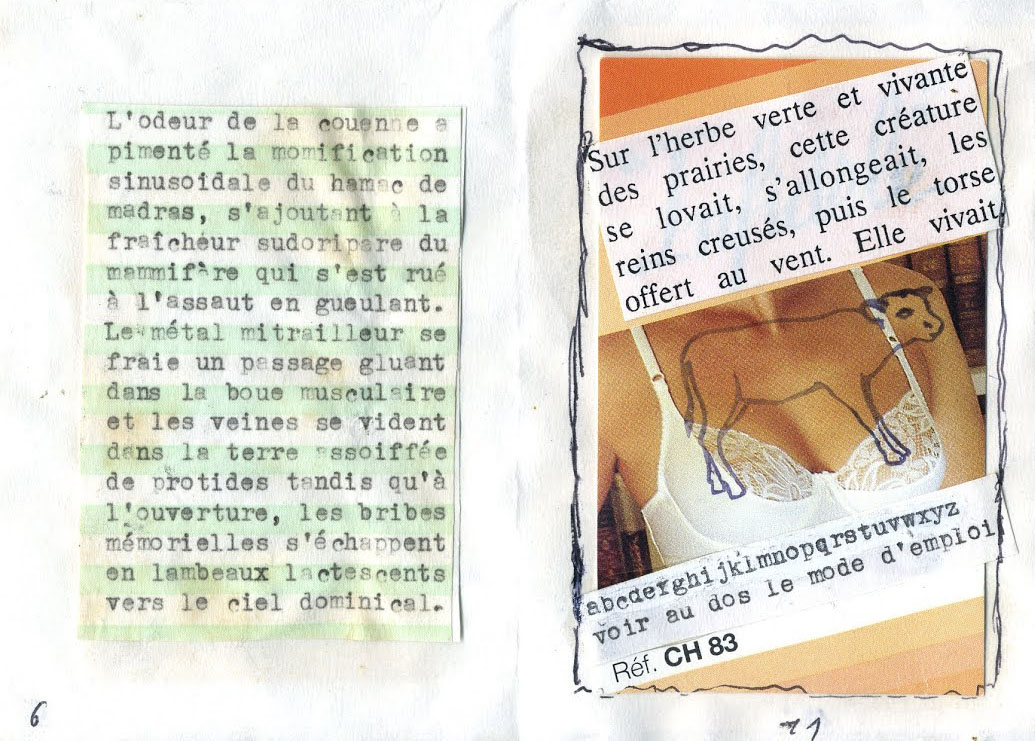 L'odeur de la couenne a
pimenté la momification
sinusoidale du hamac de
madras, s'ajoutant à la
fraîcheur sudoripare du
mammifère qui s'est rué
à l'assaut en gueulant.
Le métal mitrailleur se
fraie un passage gluant
dans la boue musculaire
et les veines se vident
dans la terre assoiffée
de protides tandis qu'à
l'ouverture, les bribes
mémorielles s'échappent
en lambeaux lactescents
vers le ciel dominical.
6
Sur l'herbe verte et vivante
des prairies, cette créature
se lovait, s'allongeait, les
reins creusés, puis le torse
offert au vent. Elle vivait
abcdefghijklmnopqrstuvwxyz
voir au dos le mode d'emploi
Réf. CH 83